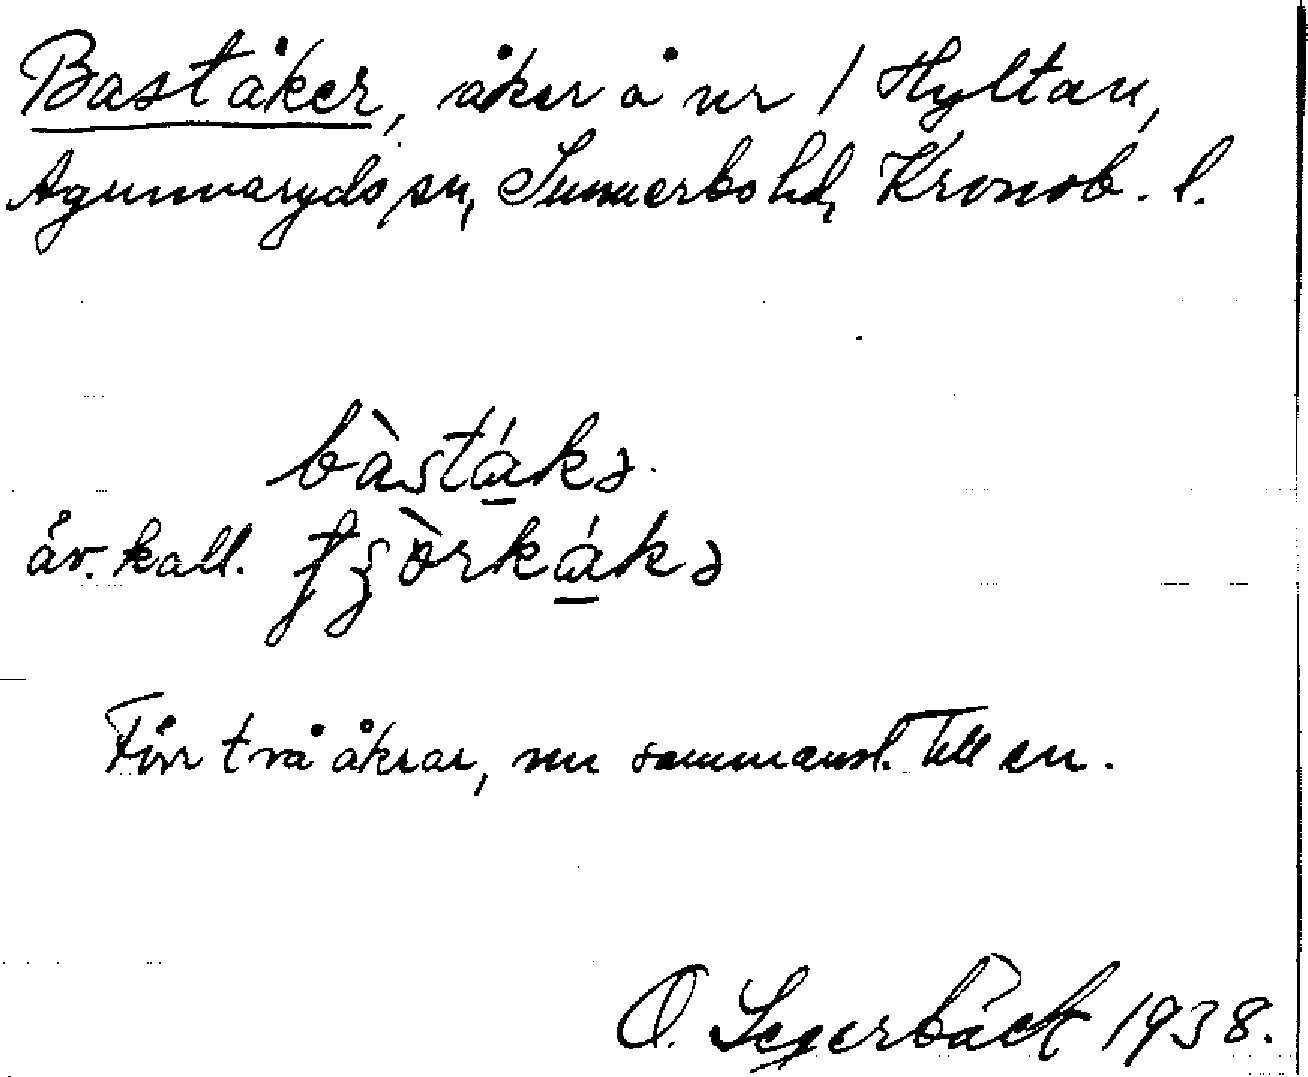 Baståker, åker å nr 1 Hyltan,
Agunnaryds sn, Sunnerbo hd, Kronob. l.
bàstákə
äv. kall.
Förr två åkrar, nu sammansl. till en.
O. Segerbäck 1938.